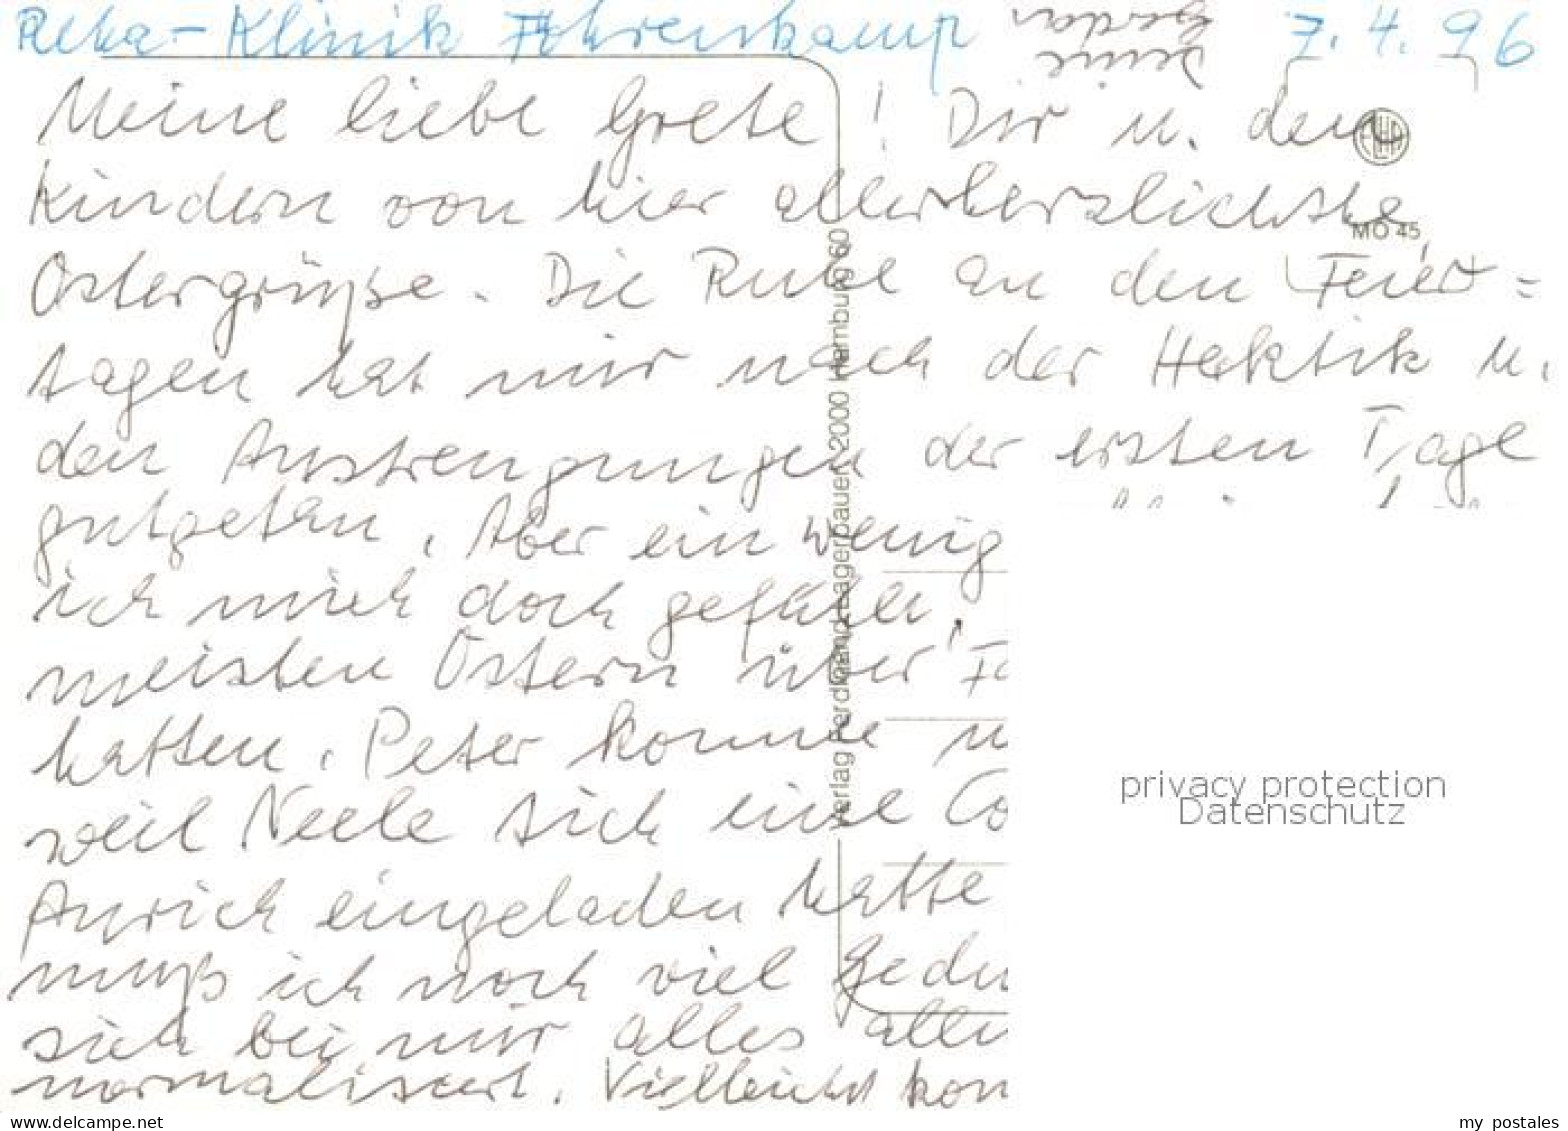 Reha-Klinik Föhrenkamp 7. 4. 96
Deine
Gerda
Meine liebe Grete! Dir u. den
Kindern von hier allerherzlichste
Ostergrüße. Die Ruhe an den Feier=
tagen hat mir nach der Hektik u.
den Anstrengungen der ersten Tage
gutgetan. Aber ein wenig
ich mich doch gefühlt,
meisten Ostern über
hatten. Peter konnte
weil Neele sich eine
Aurich eingeladen hatte
muß ich noch viel Gedu
sich bei mir alles
normalisiert. Vielleicht kon
MO 45
Verlag Ferdinand Lagerbauer, 2000 Hamburg 60
privacy protection
Datenschutz
www.delcampe.net
my_postales